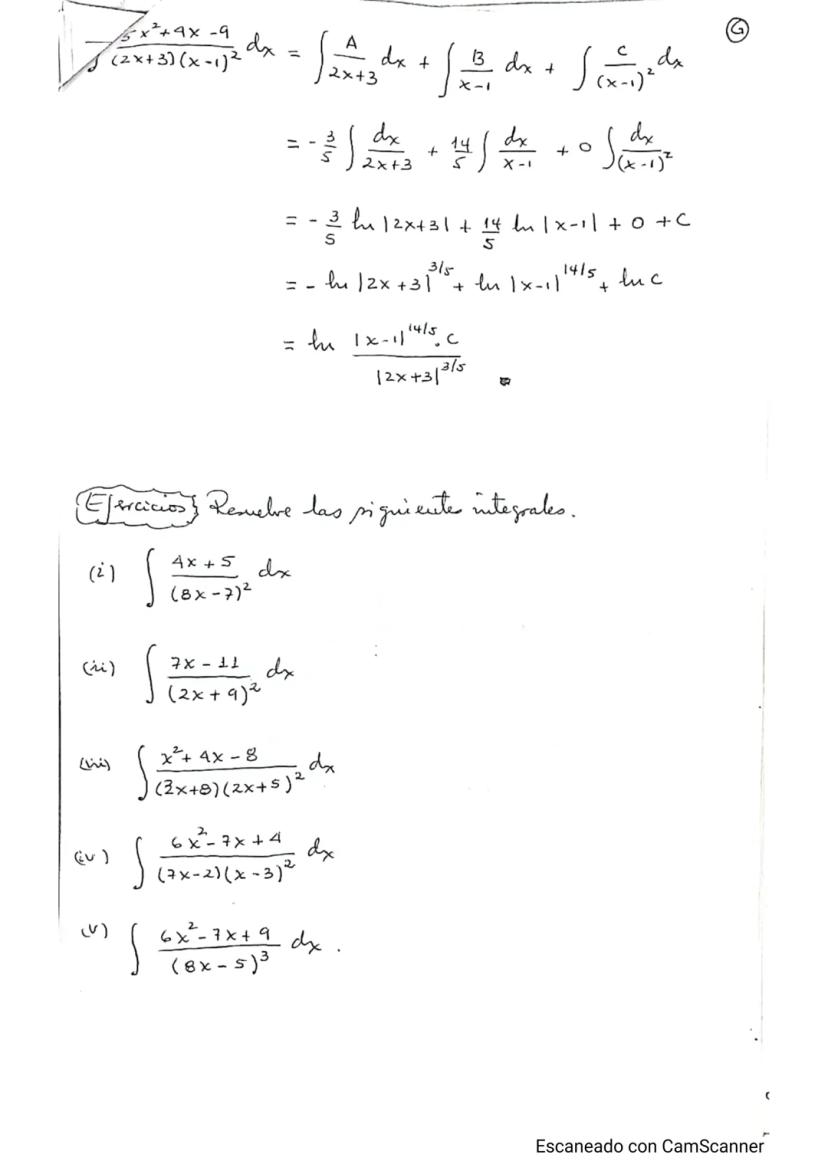 G
∫ (5x²+4x-9)/((2x+3)(x-1)²) dx = ∫ A/(2x+3) dx + ∫ B/(x-1) dx + ∫ C/(x-1)² dx
= - 3/5 ∫ dx/(2x+3) + 14/5 ∫ dx/(x-1) + 0 ∫ dx/(x-1)²
= - 3/5 ln |2x+3| + 14/5 ln |x-1| + 0 + C
= - ln |2x+3|^(3/5) + ln |x-1|^(14/5) + ln C
= ln (|x-1|^(14/5) . C)/(|2x+3|^(3/5))
Ejercicios} Resuelve las siguientes integrales.
(i) ∫ (4x+5)/(8x-7)² dx
(ii) ∫ (7x-11)/(2x+9)² dx
(iii) ∫ (x²+4x-8)/((3x+8)(2x+5)²) dx
(iv) ∫ (6x²-7x+4)/((7x-2)(x-3)²) dx
(v) ∫ (6x²-7x+9)/(8x-5)³ dx .
Escaneado con CamScanner